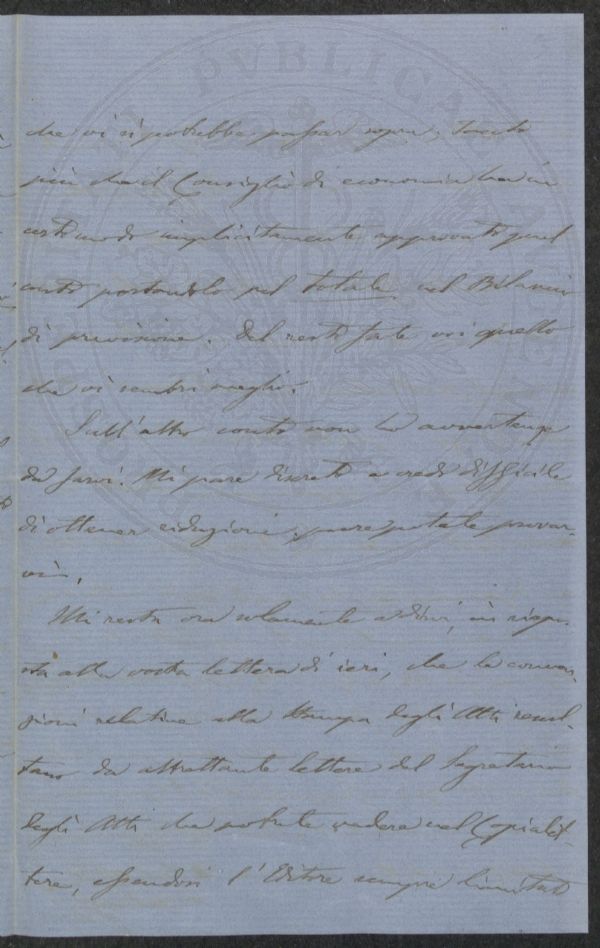 che vi si potrebbe passar sopra, tanto
più che il Consiglio di economia ha in
certo modo implicitamente approvato quel
conto portandolo pel totale nel Bilancio
di previsione. Del resto fate voi quello
che vi sembri meglio.
Sull'altro conto non ho avvertenze
da farvi. Mi pare discreto e credo difficile
di ottener riduzioni, pure potete provar-
vi.
Mi resta ora solamente a dirvi, in rispo-
sta alla vostra lettera di ieri, che le conven-
zioni relative alla stampa degli Atti resul-
tano da altrettante lettere del Segretario
degli Atti che potrete vedere nel Copialet-
tere, essendosi l'Editore sempre limitato